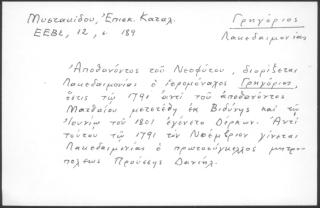 Μυστακίδου, Ἐπισκ. Κατάλ.
Γρηγόριος
ΕΕΒΣ, 12, σ. 189
Λακεδαιμονίας
Ἀποθανόντος τοῦ Νεοφύτου, διορίζεται
Λακεδαιμονίας ὁ ἱερομόναχος Γρηγόριος,
ὅστις τῷ 1791 ἀντὶ τοῦ ἀποθανόντος
Ματθαίου μετετέθη ἐκ Βιδύνης καὶ τῷ
Ἰουνίῳ τοῦ 1801 ἐγένετο Δέρκων. Ἀντὶ
τούτου τῷ 1791 τὸν Νοέμβριον γίνεται
Λακεδαιμονίας ὁ πρωτοσύγκελλος μητρο-
πόλεως Προύσσης Δανιήλ.